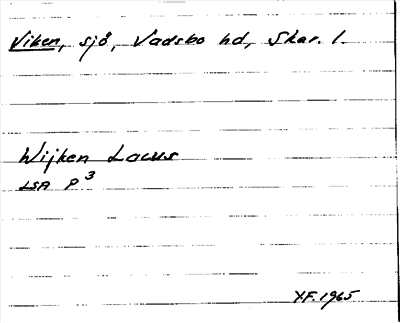 Viken, sjö, Vadsbo hd, Skar. l.
Wijken Lacus
LSA P³
YF. 1965